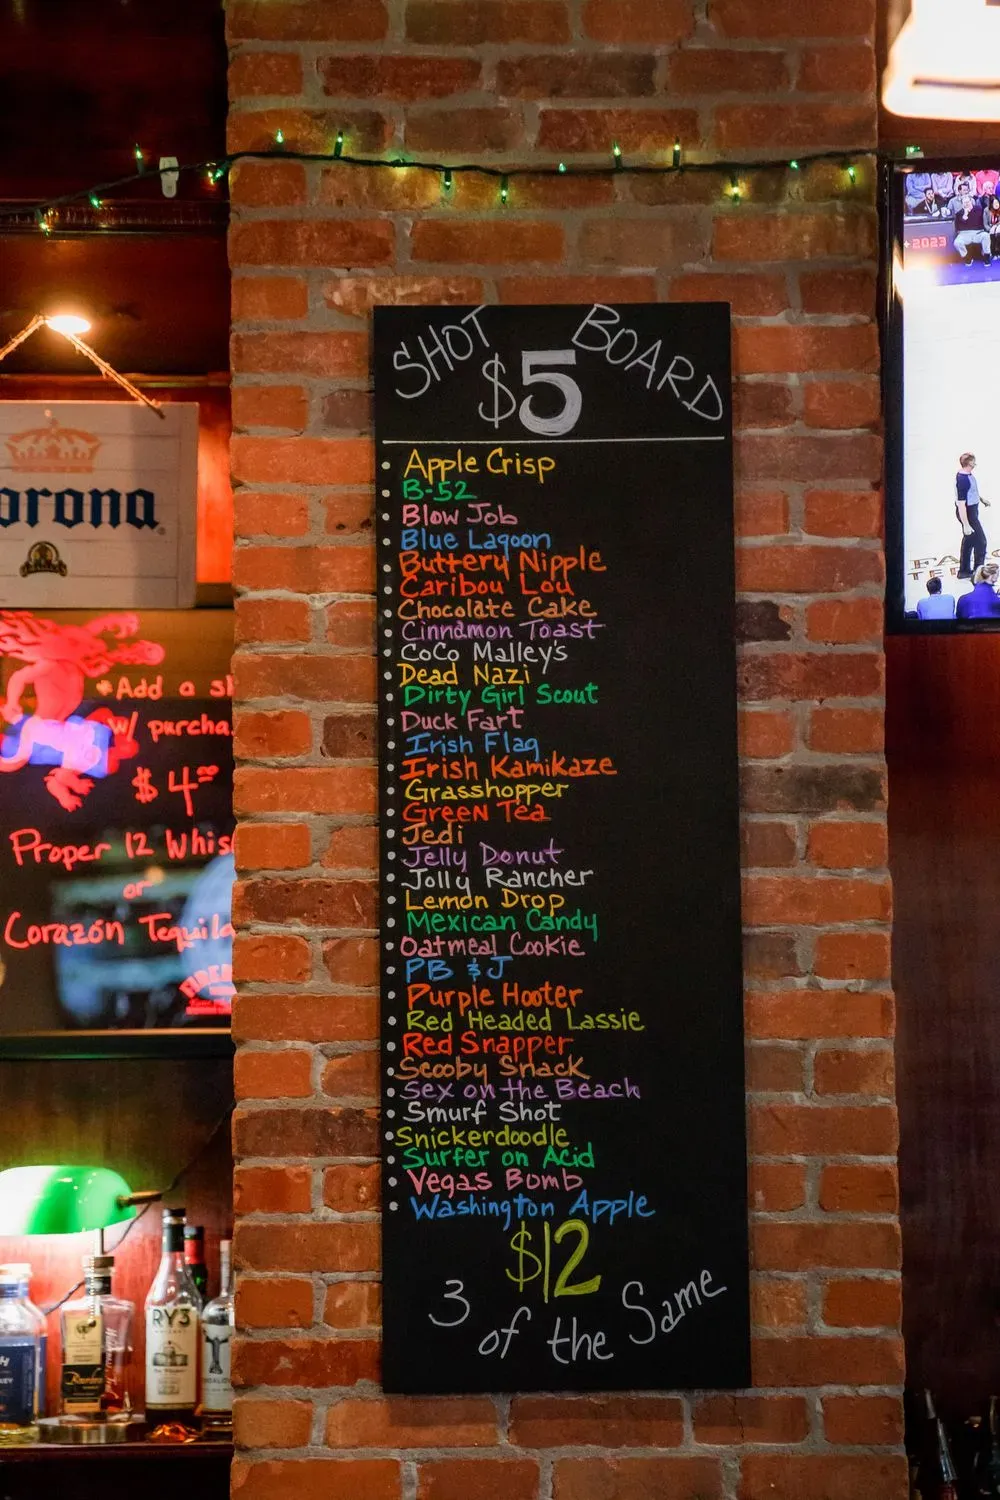 SHOT BOARD
$5
Apple Crisp
B-52
Blow Job
Blue Lagoon
Buttery Nipple
Caribou Lou
Chocolate Cake
Cinnamon Toast
CoCo Malley's
Dead Nazi
Dirty Girl Scout
Duck Fart
Irish Flag
Irish Kamikaze
Grasshopper
Green Tea
Jedi
Jelly Donut
Jolly Rancher
Lemon Drop
Mexican Candy
Oatmeal Cookie
PB & J
Purple Hooter
Red Headed Lassie
Red Snapper
Scooby Snack
Sex on the Beach
Smurf Shot
Snickerdoodle
Surfer on Acid
Vegas Bomb
Washington Apple
$12
3 of the Same
orona
*Add a s
w/ purcha
$4.00
Proper 12 Whis
or
Corazón Tequila
RY3
2023